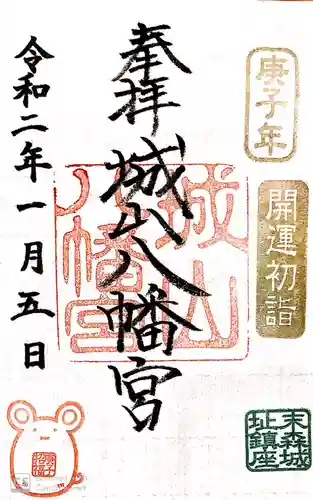 庚子年
開運初詣
奉拝
城山八幡宮
城山
八幡宮
令和二年一月五日
末森城
址鎮座